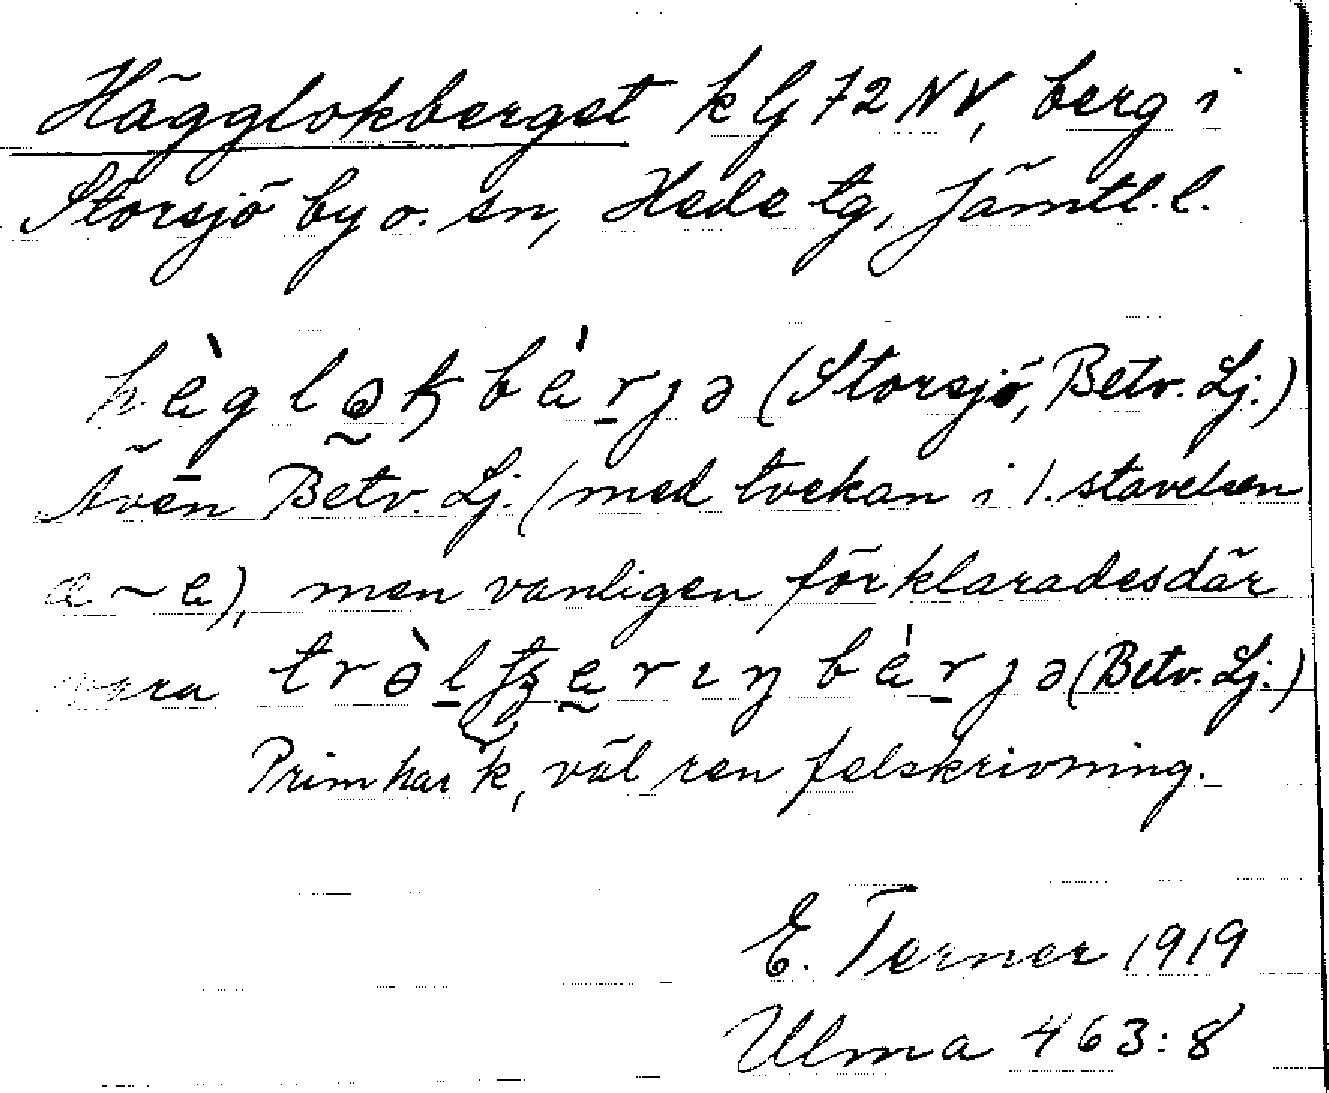 Hägglokberget k G 72 NV, berg i
Storsjö by o. sn, Hede tg, Jämtl. l.
hèglək bérjə (Storsjö, Betv. Lj.)
Även Betv. Lj. (med tvekan i 1. stavelsen
æ ~ e), men vanligen förklarades där
vara (Betv. Lj.)
Prim har k, väl ren felskrivning.
E. Terner 1919
Ulma 463:8